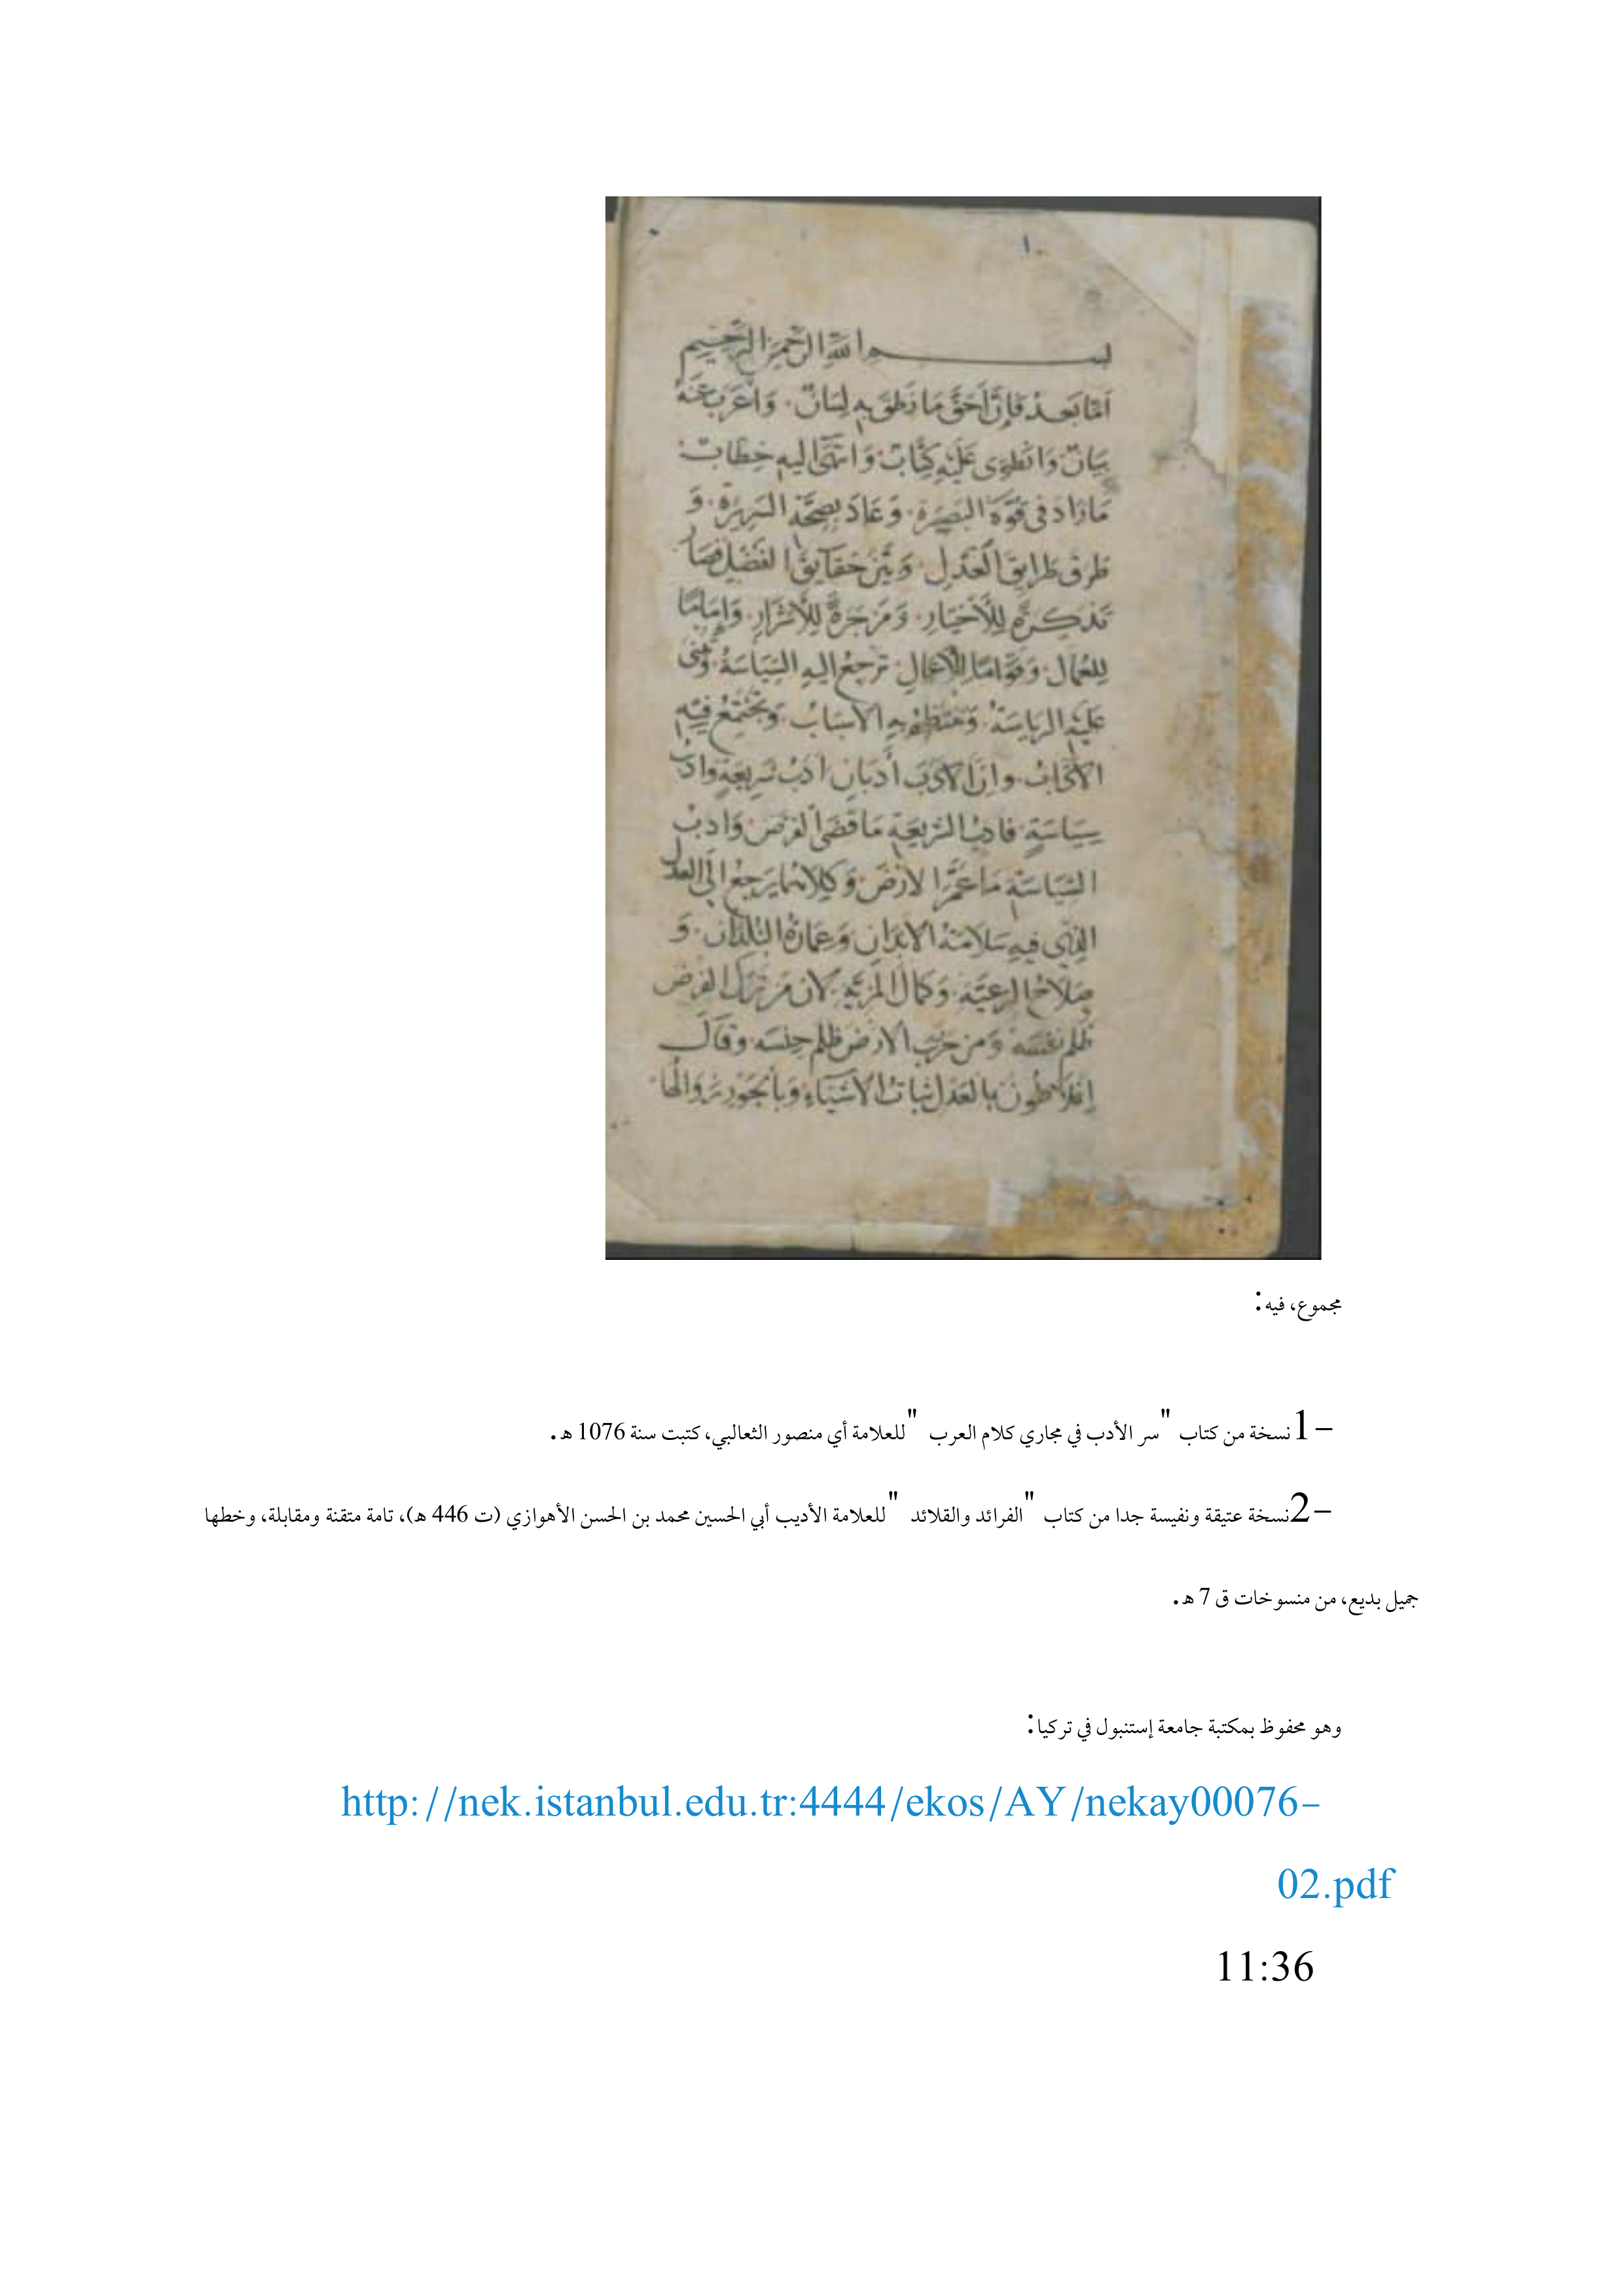 بسم الله الرحمن الرحيم
اما بعد فان احق ما نطق به لسان. واعرب عنه
بيان وانطوى عليه كتاب وانتهى اليه خطاب
ما زاد في قوة البصيرة. وعاد بصحة السريرة. و
طرق طرايق العدل. وبين حقايق الفضل فصار
تذكرة للأخيار. ومزجرة للأشرار. واماما
للعمال. وقواما للأعمال. ترجع اليه السياسة. وتبنى
عليه الرياسة. وتنتظم به الاسباب. وتجتمع فيه
الآداب. وان الادب أدبان ادب شريعة وادب
سياسة. فادب الشريعة ما قضى الفرض وادب
السياسة ما عمر الارض وكلاهما يرجع الى العدل
الذي فيه سلامة الابدان وعمارة البلدان. و
صلاح الرعية. وكمال المزية. لان من ترك الفرض
ظلم نفسه ومن خرب الارض ظلم جنسه وقال
إفلاطون بالعدل ثبات الاشياء وبالجور زوالها.
مجموع، فيه:
1- نسخة من كتاب "سر الأدب في مجاري كلام العرب" للعلامة أي منصور الثعالبي، كتبت سنة 1076 هـ.
2- نسخة عتيقة ونفيسة جدا من كتاب "الفرائد والقلائد" للعلامة الأديب أبي الحسين محمد بن الحسن الأهوازي (ت 446 هـ)، تامة متقنة ومقابلة، وخطها
جميل بديع، من منسوخات ق 7 هـ.
وهو محفوظ بمكتبة جامعة إستنبول في تركيا:
http://nek.istanbul.edu.tr:4444/ekos/AY/nekay00076-
02.pdf
11:36